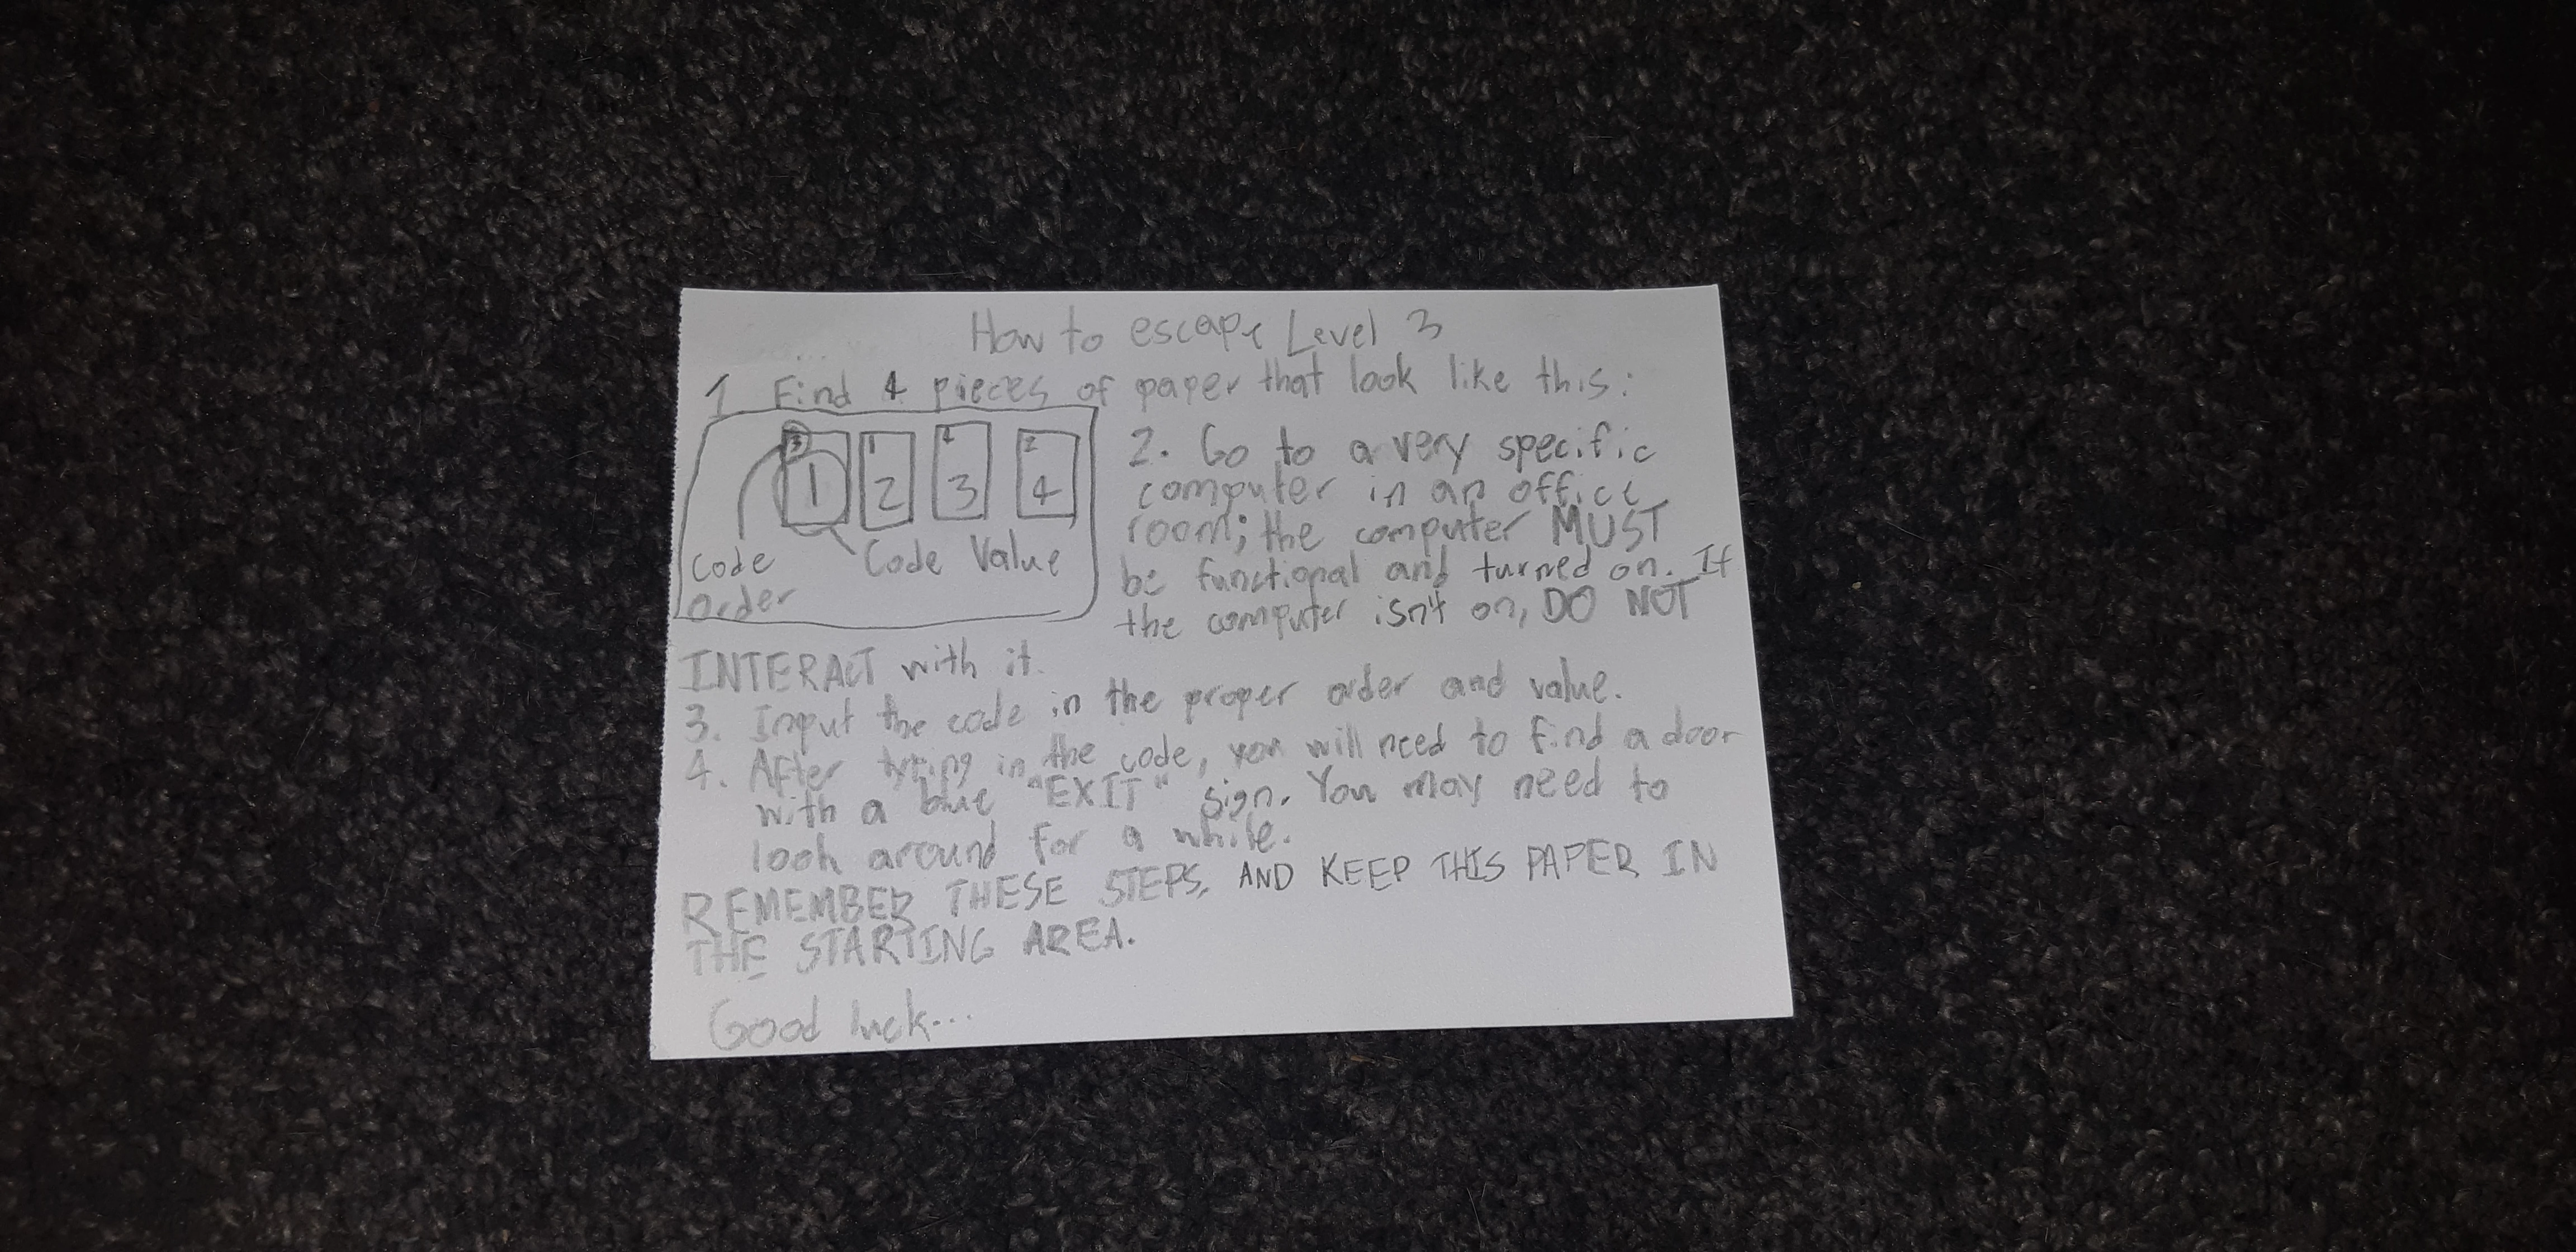 How to escape Level 3
1 Find 4 pieces of paper that look like this:
3 1 4 2
1 2 3 4
Code Value
code
order
2. Go to a very specific
computer in an office
room; the computer MUST
be functional and turned on. If
the computer isn't on, DO NOT
INTERACT with it.
3. Input the code in the proper order and value.
4. After typing in the code, you will need to find a door
with a blue "EXIT" sign. You may need to
look around for a while.
REMEMBER THESE STEPS, AND KEEP THIS PAPER IN
THE STARTING AREA.
Good luck...